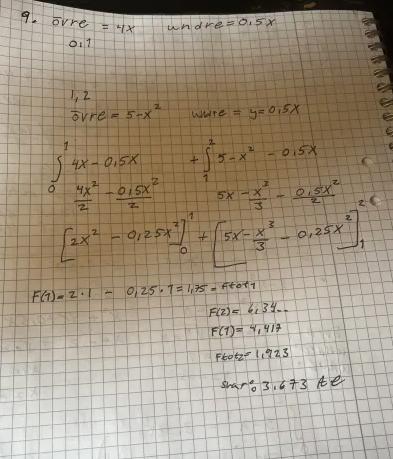 9. övre = 4x undre = 0,5x
0,1
1,2
övre = 5-x² undre = y=0,5x
∫₀¹ 4x - 0,5x + ∫₁² 5-x² - 0,5x
4x²/2 - 0,5x²/2 5x - x³/3 - 0,5x²/2
[2x² - 0,25x²]₀¹ + [5x - x³/3 - 0,25x²]₁²
F(1)= 2·1 - 0,25·1 = 1,75 = Ftot1
F(2)= 6,34..
F(1)= 4,417
Ftot2= 1,923
Svar: 3.673 Ae